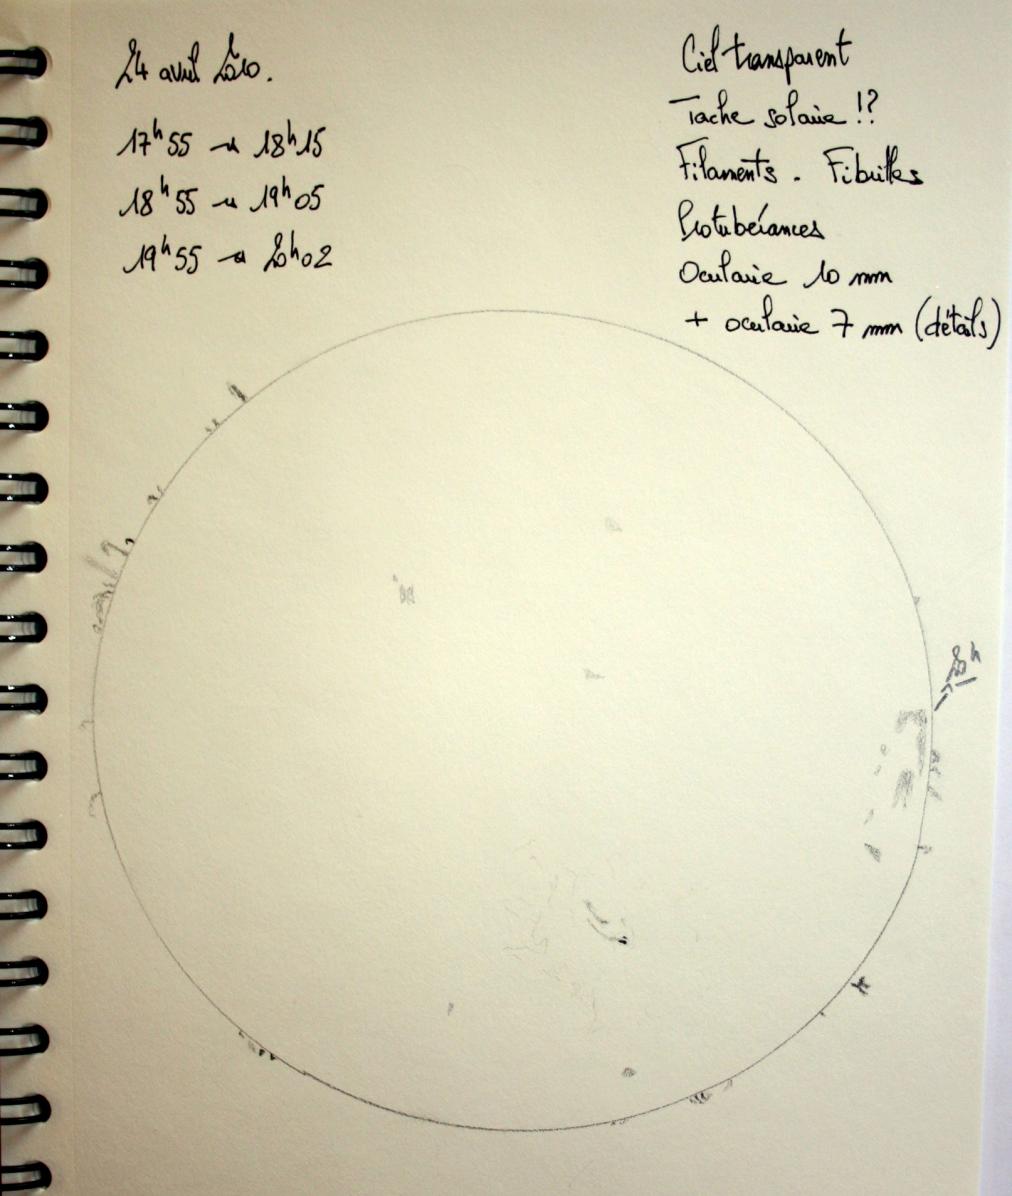 24 avril 2010.
17h55 → 18h15
18h55 → 19h05
19h55 → 20h02
Ciel transparent
Tache solaire !?
Filaments. Fibrilles
Protubérances
Oculaire 10 mm
+ oculaire 7 mm (détails)
20h